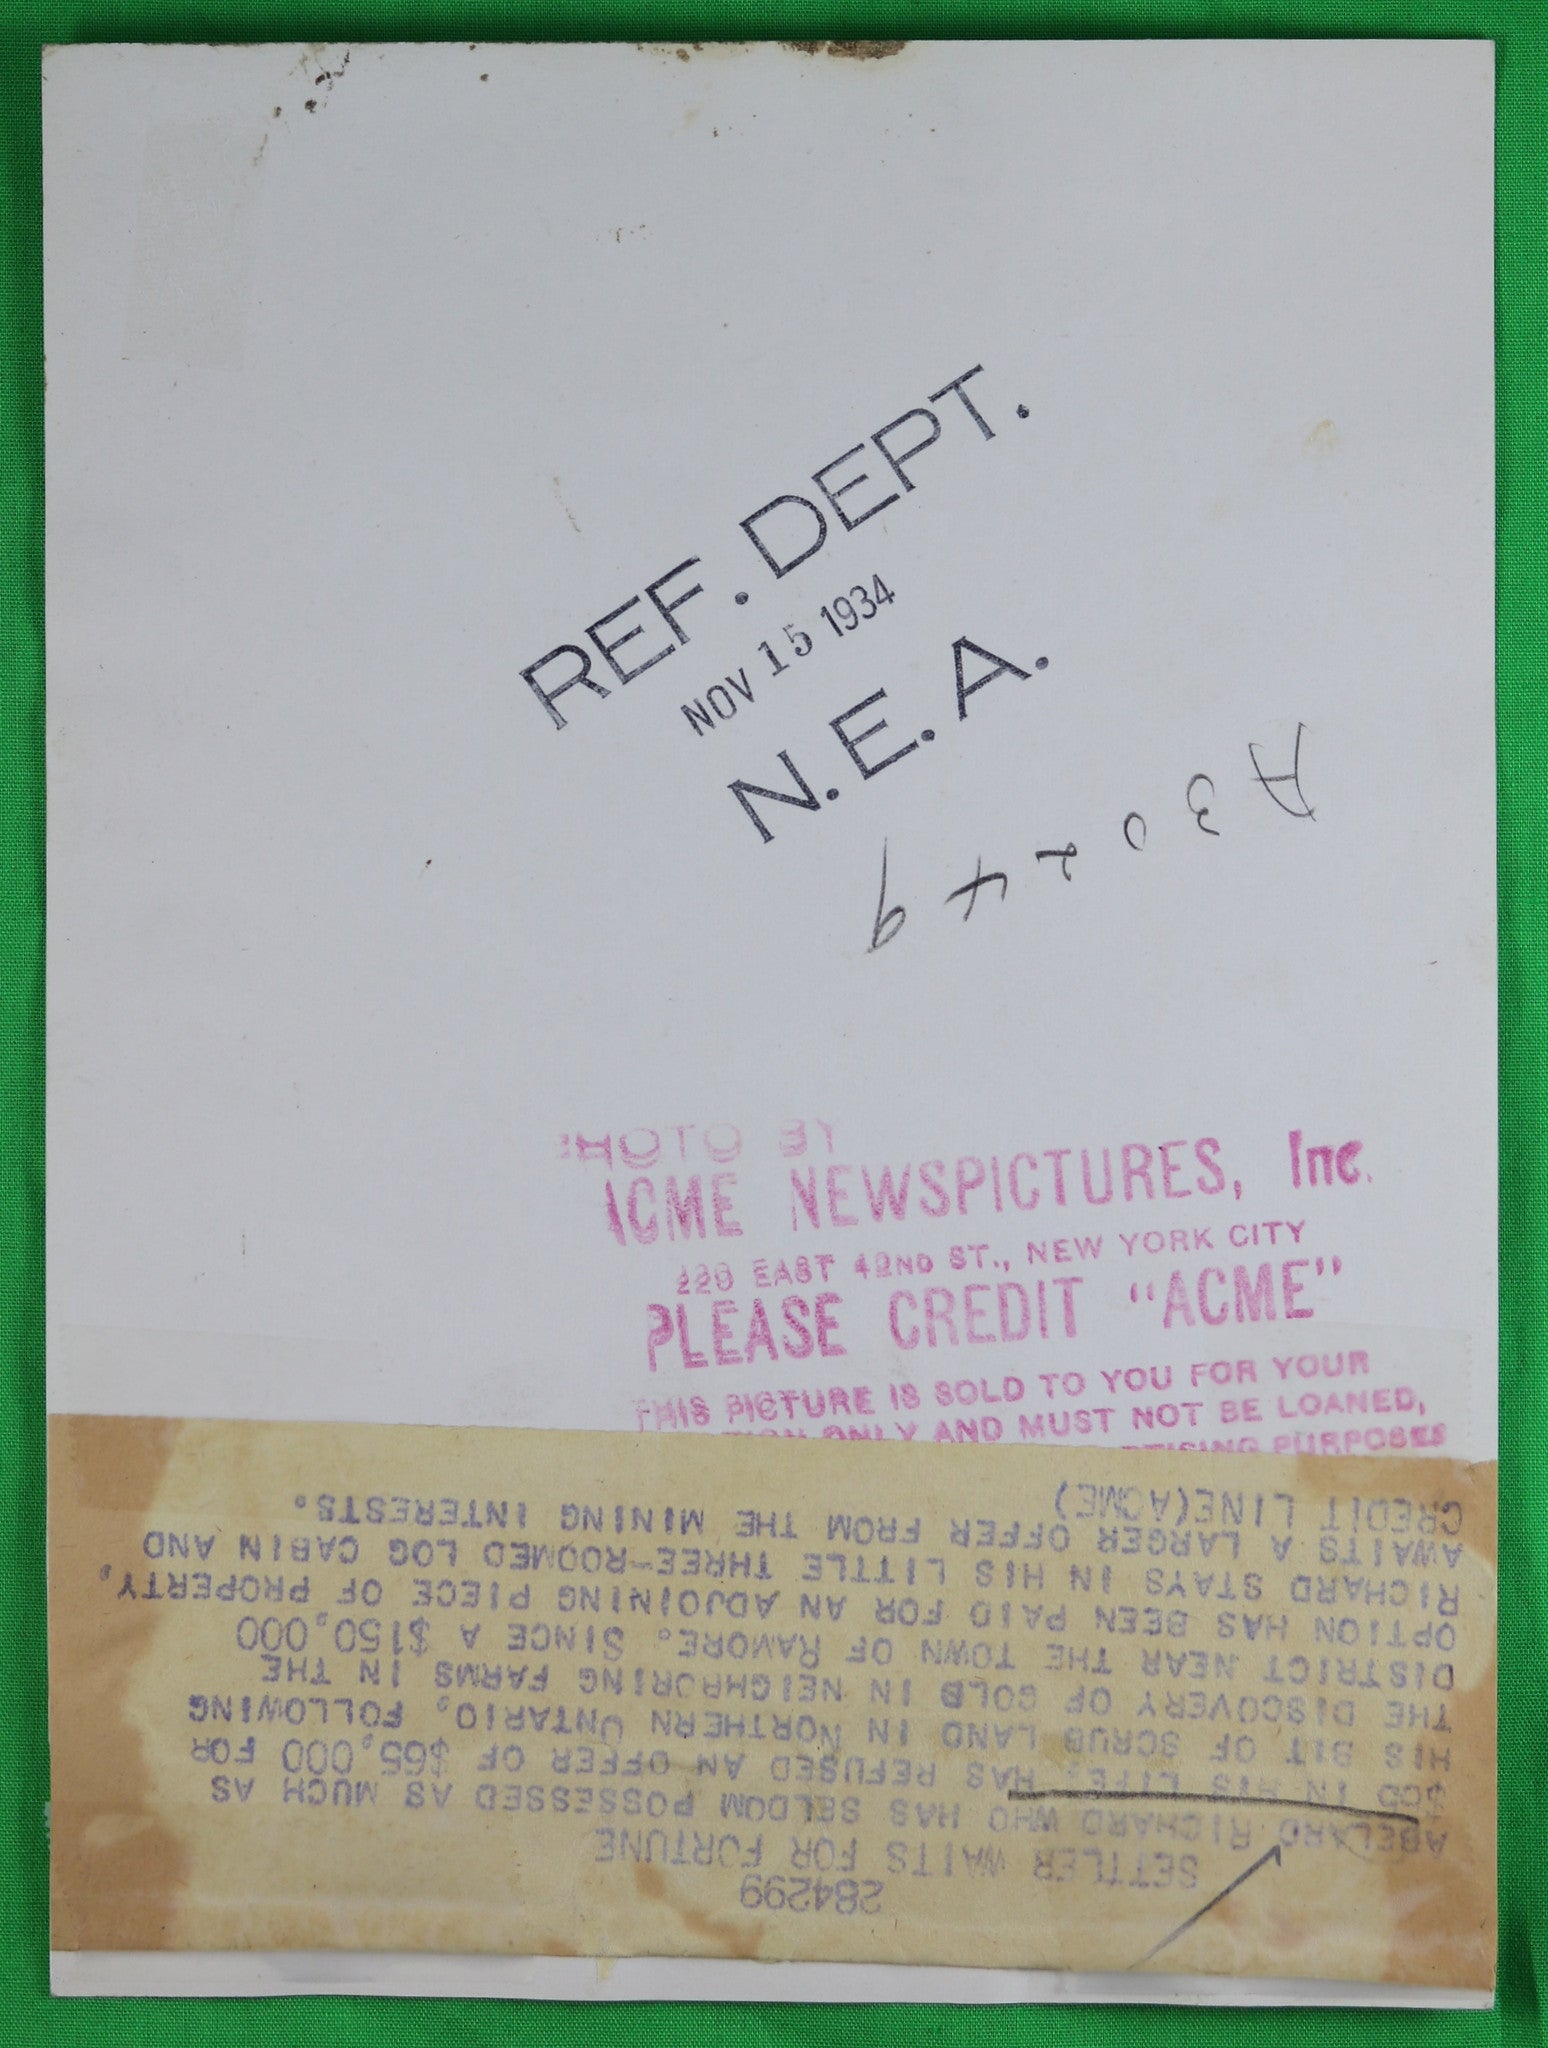 REF. DEPT.
NOV 15 1934
N. E. A.
A30249
PHOTO BY
ACME NEWSPICTURES, Inc.
220 EAST 42ND ST., NEW YORK CITY
PLEASE CREDIT "ACME"
THIS PICTURE IS SOLD TO YOU FOR YOUR
ONLY AND MUST NOT BE LOANED,
PURPOSES
284299
SETTLER WAITS FOR FORTUNE
ABELARD RICHARD WHO HAS SELDOM POSSESSED AS MUCH AS
IN HIS LIFE, HAS REFUSED AN OFFER OF $65,000 FOR
HIS BIT OF SCRUB LAND IN NORTHERN ONTARIO, FOLLOWING
THE DISCOVERY OF GOLD IN NEIGHBORING FARMS IN THE
DISTRICT NEAR THE TOWN OF RAMORE. SINCE A $150,000
OPTION HAS BEEN PAID FOR AN ADJOINING PIECE OF PROPERTY,
RICHARD STAYS IN HIS LITTLE THREE-ROOMED LOG CABIN AND
AWAITS A LARGER OFFER FROM THE MINING INTERESTS.
CREDIT LINE(ACME)